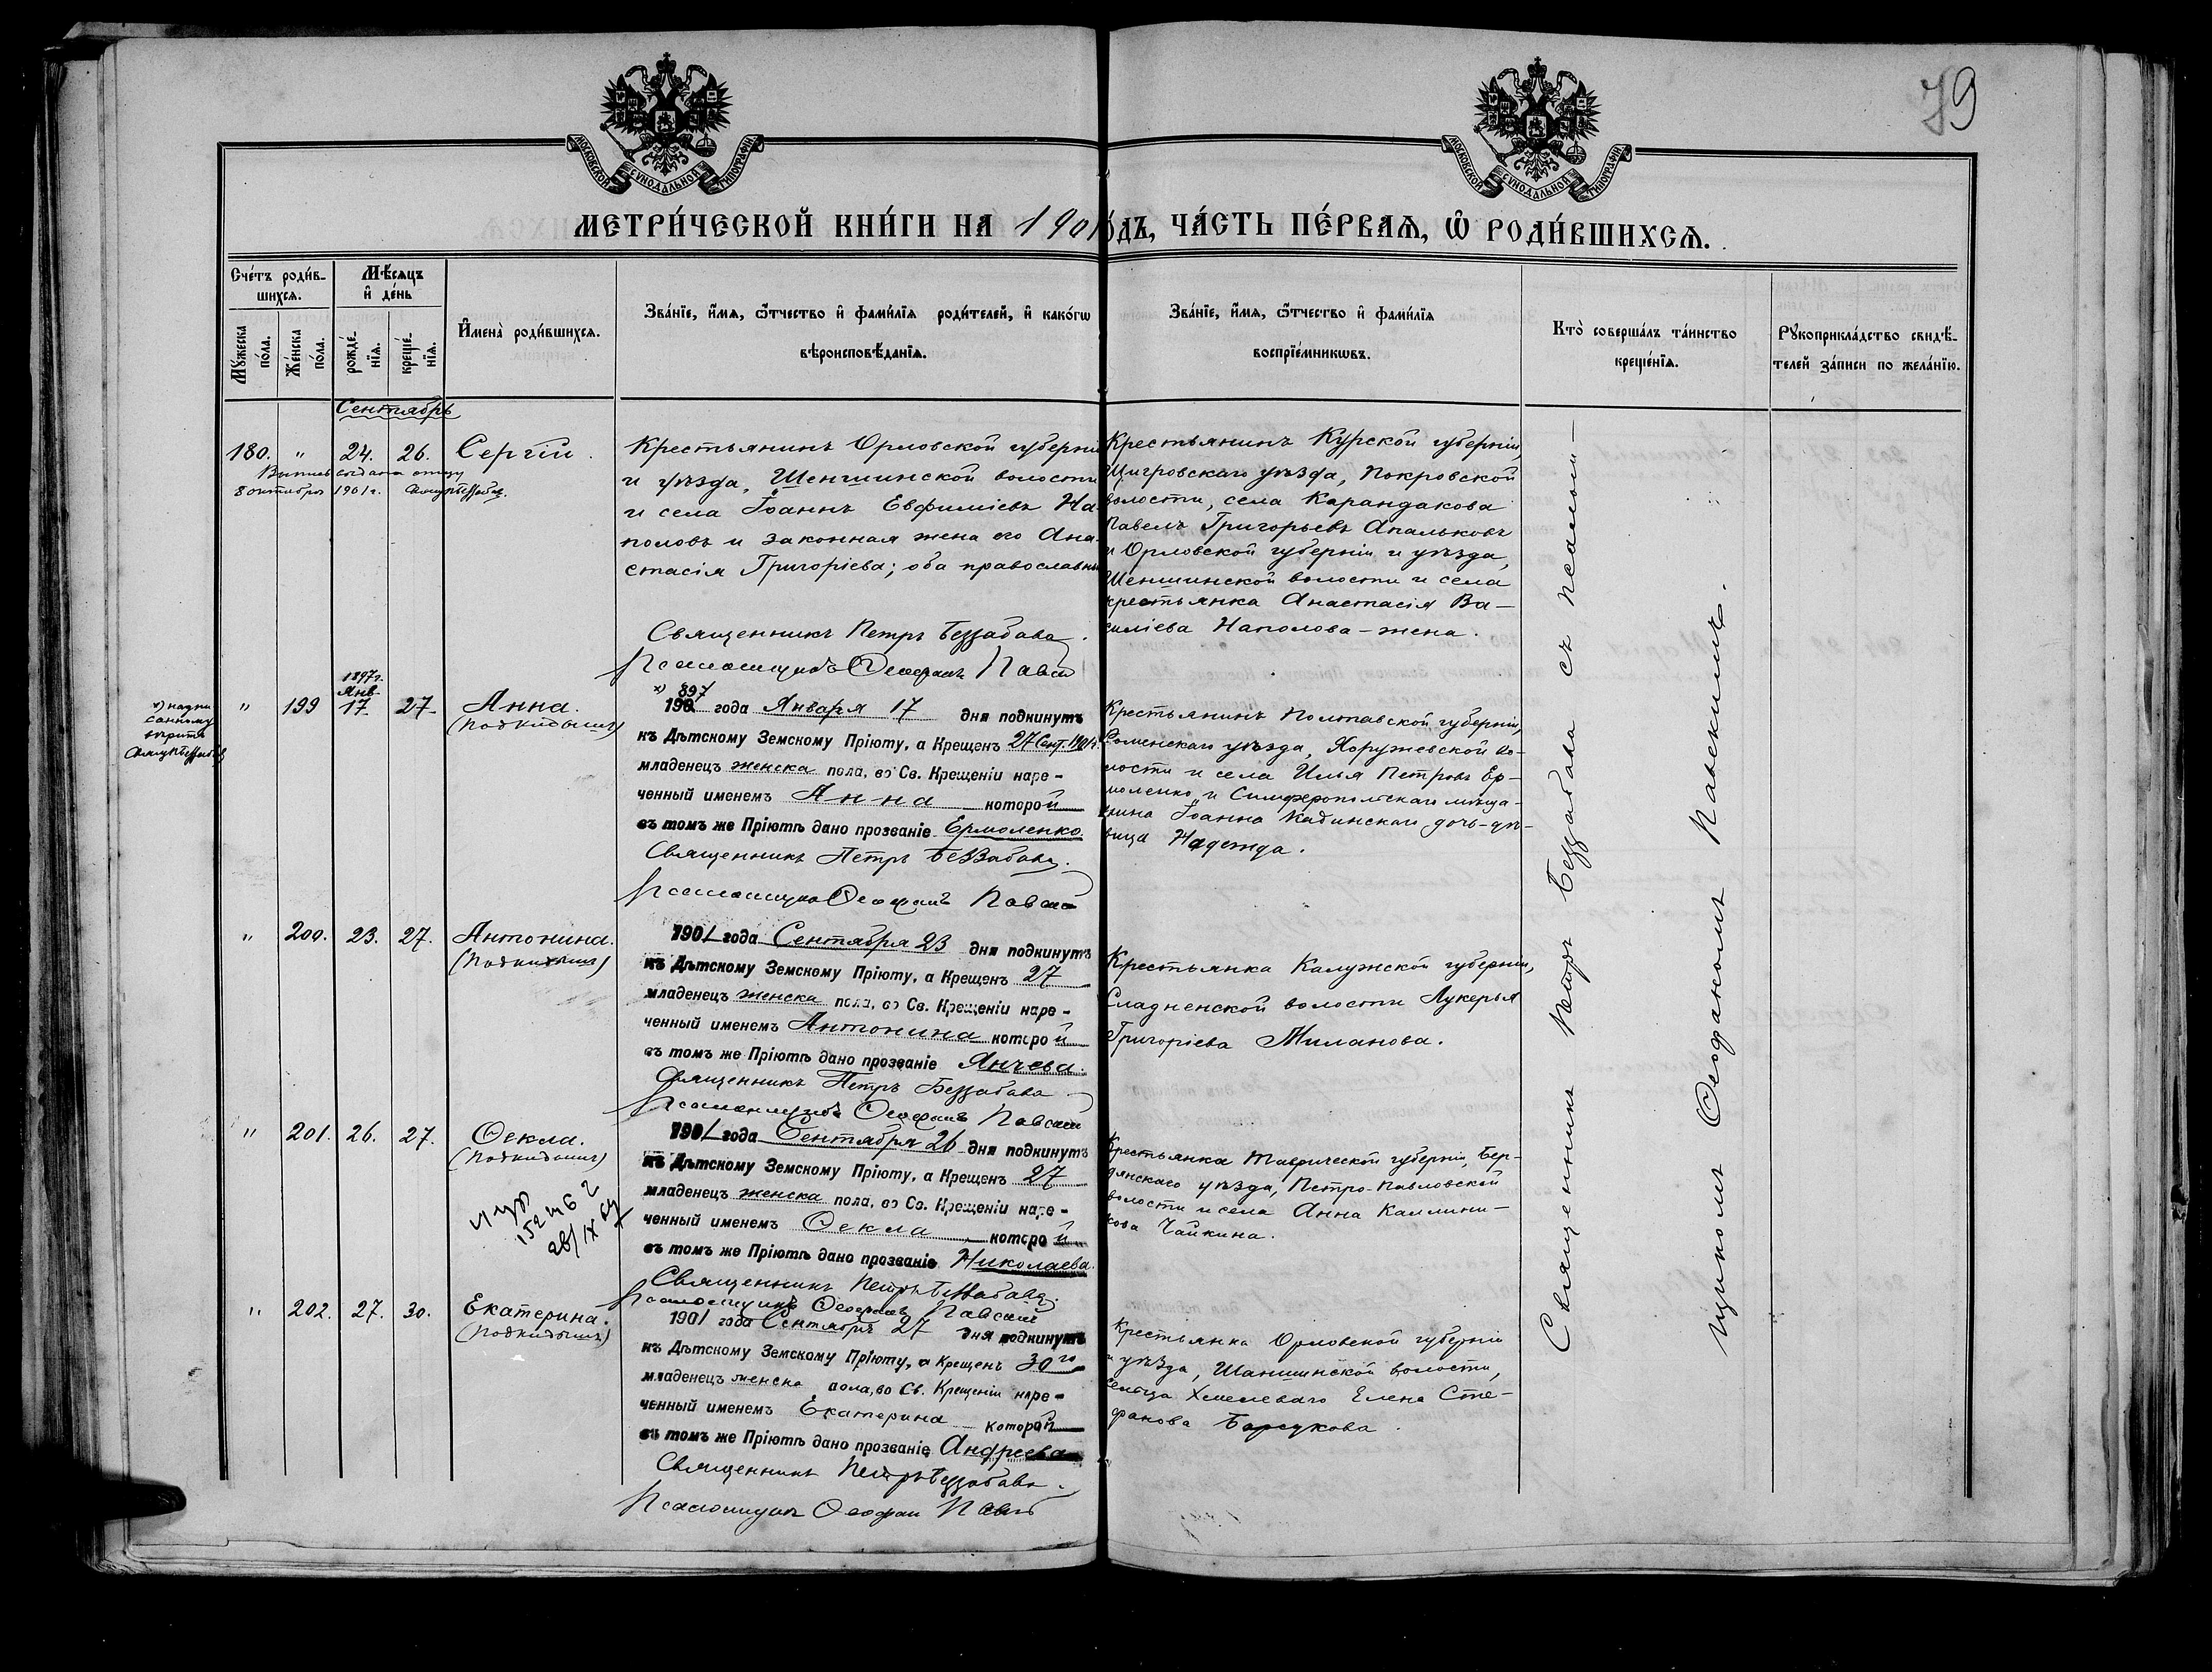 79
МОСКОВСКОЙ СѴНОДАЛЬНОЙ ТИПОГРАФІИ
МОСКОВСКОЙ СѴНОДАЛЬНОЙ ТИПОГРАФІИ
МЕТРИ́ЧЕСКОЙ КНИ́ГИ НА 1901 ГО́ДЪ, ЧА́СТЬ ПЕ́РВАѦ, Ѽ РОДИ́ВШИХСѦ.
Сче́тъ роди́в-
шихсѧ.
Мꙋ́жеска по́ла.
Же́нска по́ла.
Мѣ́сѧцъ
и҆ де́нь
рожде́-
нїѧ.
креще́-
нїѧ.
И҆мена̀ роди́вшихсѧ.
Зва́нїе, и҆́мѧ, ѻ҆́тчество и҆ фами́лїѧ роди́телей, и҆ како́гѡ
вѣроисповѣ́данїѧ.
Зва́нїе, и҆́мѧ, ѻ҆́тчество и҆ фами́лїѧ
воспрїе́мникѡвъ.
Кто̀ соверша́лъ та́инство
креще́нїѧ.
Рꙋкоприкла́дство свидѣ́-
телей за́писи по жела́нїю.
Сентябрь
180. " 24. 26. Сергій.
Выпись выдана отцу
8 октября 1901 г.
Крестьянинъ Орловской губерніи
и уѣзда, Шеншинской волости
и села Іоаннъ Евфиміевъ На-
половъ и законная жена его Ана-
стасія Григоріева; оба православны
Священникъ Петръ Беззабава.
Псаломщикъ Ѳеофанъ Павскій
Крестьянинъ Курской губерніи,
Щигровскаго уѣзда, Покровской
волости, села Карандакова
Павелъ Григорьевъ Апальковъ
и Орловской губерніи и уѣзда,
Шеншинской волости и села
крестьянка Анастасія Ва-
силіева Наполова – жена.
х) надпи-
санному
вѣрить
" 199 1897 г. Янв. 17 27 Анна.
(подкидышъ)
х) 897
190 года Января 17 дня подкинутъ
къ Дѣтскому Земскому Пріюту, а Крещенъ 27 Сент. 1901 г.
младенецъ женска пола, во Св. Крещеніи наре-
ченный именемъ Анна которой
въ томъ же Пріютѣ дано прозваніе Ермоленко.
Священникъ Петръ Беззабава.
Псаломщикъ Ѳеофанъ Павскій
Крестьянинъ Полтавской губерніи,
Роменскаго уѣзда, Хоружевской во-
лости и села Илья Петровъ Ер-
моленко и Симферопольскаго мѣща-
нина Іоанна Кабинскаго дочь-дѣ-
вица Надежда.
" 200. 23. 27. Антонина.
(подкидышъ)
1901 года Сентября 23 дня подкинутъ
къ Дѣтскому Земскому Пріюту, а Крещенъ 27
младенецъ женска пола, во Св. Крещеніи наре-
ченный именемъ Антонина которой
въ томъ же Пріютѣ дано прозваніе Янчева.
Священникъ Петръ Беззабава
Псаломщикъ Ѳеофанъ Павскій
Крестьянка Калужской губерніи,
Сладненской волости Лукерья
Григоріева Миланова.
" 201. 26. 27. Ѳекла.
(подкидышъ)
1901 года Сентября 26 дня подкинутъ
къ Дѣтскому Земскому Пріюту, а Крещенъ 27
младенецъ женска пола, во Св. Крещеніи наре-
ченный именемъ Ѳекла которой
въ томъ же Пріютѣ дано прозваніе Николаева.
Священникъ Петръ Беззабава.
Псаломщикъ Ѳеофанъ Павскій
Крестьянка Таврической губерніи, Бер-
дянскаго уѣзда, Петро-Павловской
волости и села Анна Каллини-
кова Чайкина.
" 202. 27. 30. Екатерина.
(подкидышъ)
1901 года Сентября 27 дня подкинутъ
къ Дѣтскому Земскому Пріюту, а Крещенъ 30го
младенецъ женска пола, во Св. Крещеніи наре-
ченный именемъ Екатерина которой
въ томъ же Пріютѣ дано прозваніе Андреева
Священникъ Петръ Беззабава.
Псаломщикъ Ѳеофан Павскій
Крестьянка Орловской губерніи
и уѣзда, Шаншинской волости,
сельца Хмелеваго Елена Сте-
фанова Барсукова.
Священникъ Петръ Беззабава съ псалом-
щикомъ Ѳеофаномъ Павскимъ.